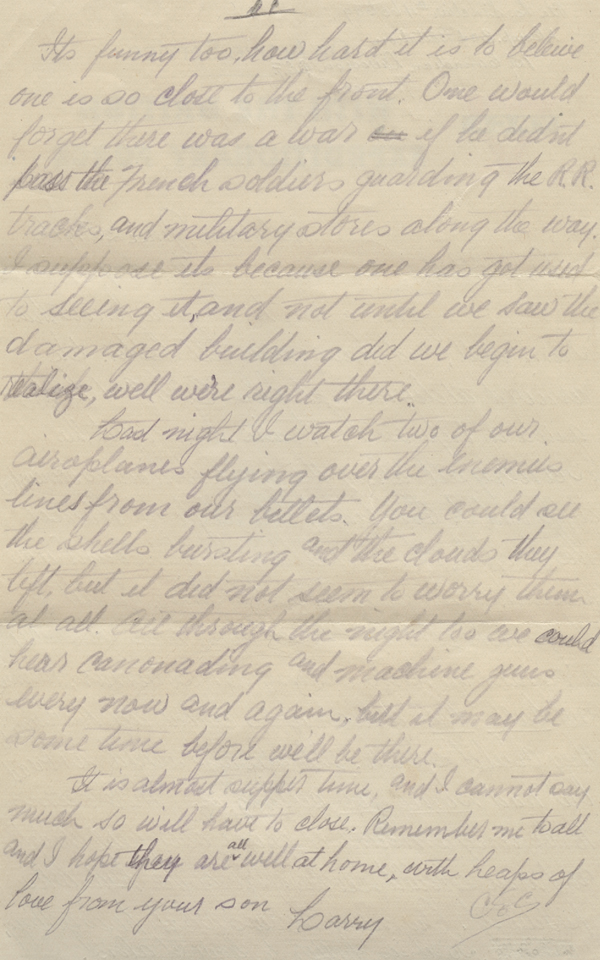 Its funny too, how hard it is to beleive
one is so close to the front. One would
forget there was a war if he didnt
pass the French soldiers guarding the R.R.
tracks, and military stores along the way.
I suppose its because one has got used
to seeing it, and not until we saw the
damaged building did we begin to
realize, well we're right there.
Last night I watch two of our
airoplanes flying over the enemies
lines from our billets. You could see
the shells bursting and the clouds they
left, but it did not seem to worry them
at all. All through the night too we could
hear canonading and machine guns
every now and again, but it may be
some time before we'll be there.
It is almost supper time, and I cannot say
much so will have to close. Remember me to all
and I hope they are all well at home, with heaps of
love from your son Harry